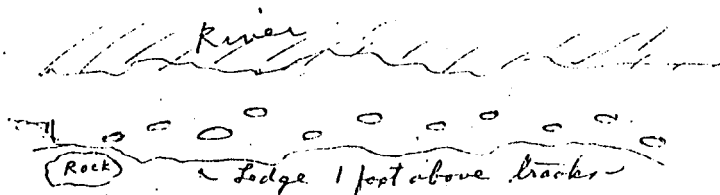 River
Rock
Ledge 1 foot above tracks